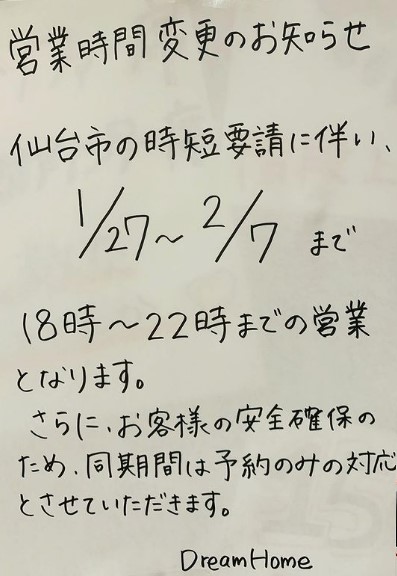 営業時間変更のお知らせ
仙台市の時短要請に伴い、
1/27〜2/7 まで
18時〜22時までの営業
となります。
さらに、お客様の安全確保の
ため、同期間は予約のみの対応
とさせていただきます。
DreamHome